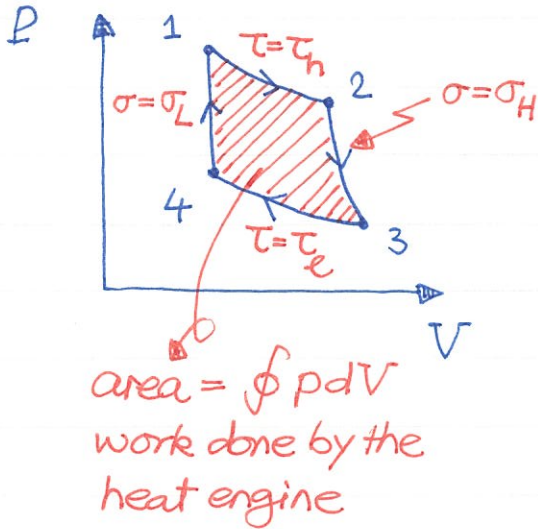 P
1
τ=τₕ
2
σ=σ_H
σ=σ_L
4
τ=τ_ℓ
3
V
area = ∮ pdV
work done by the
heat engine